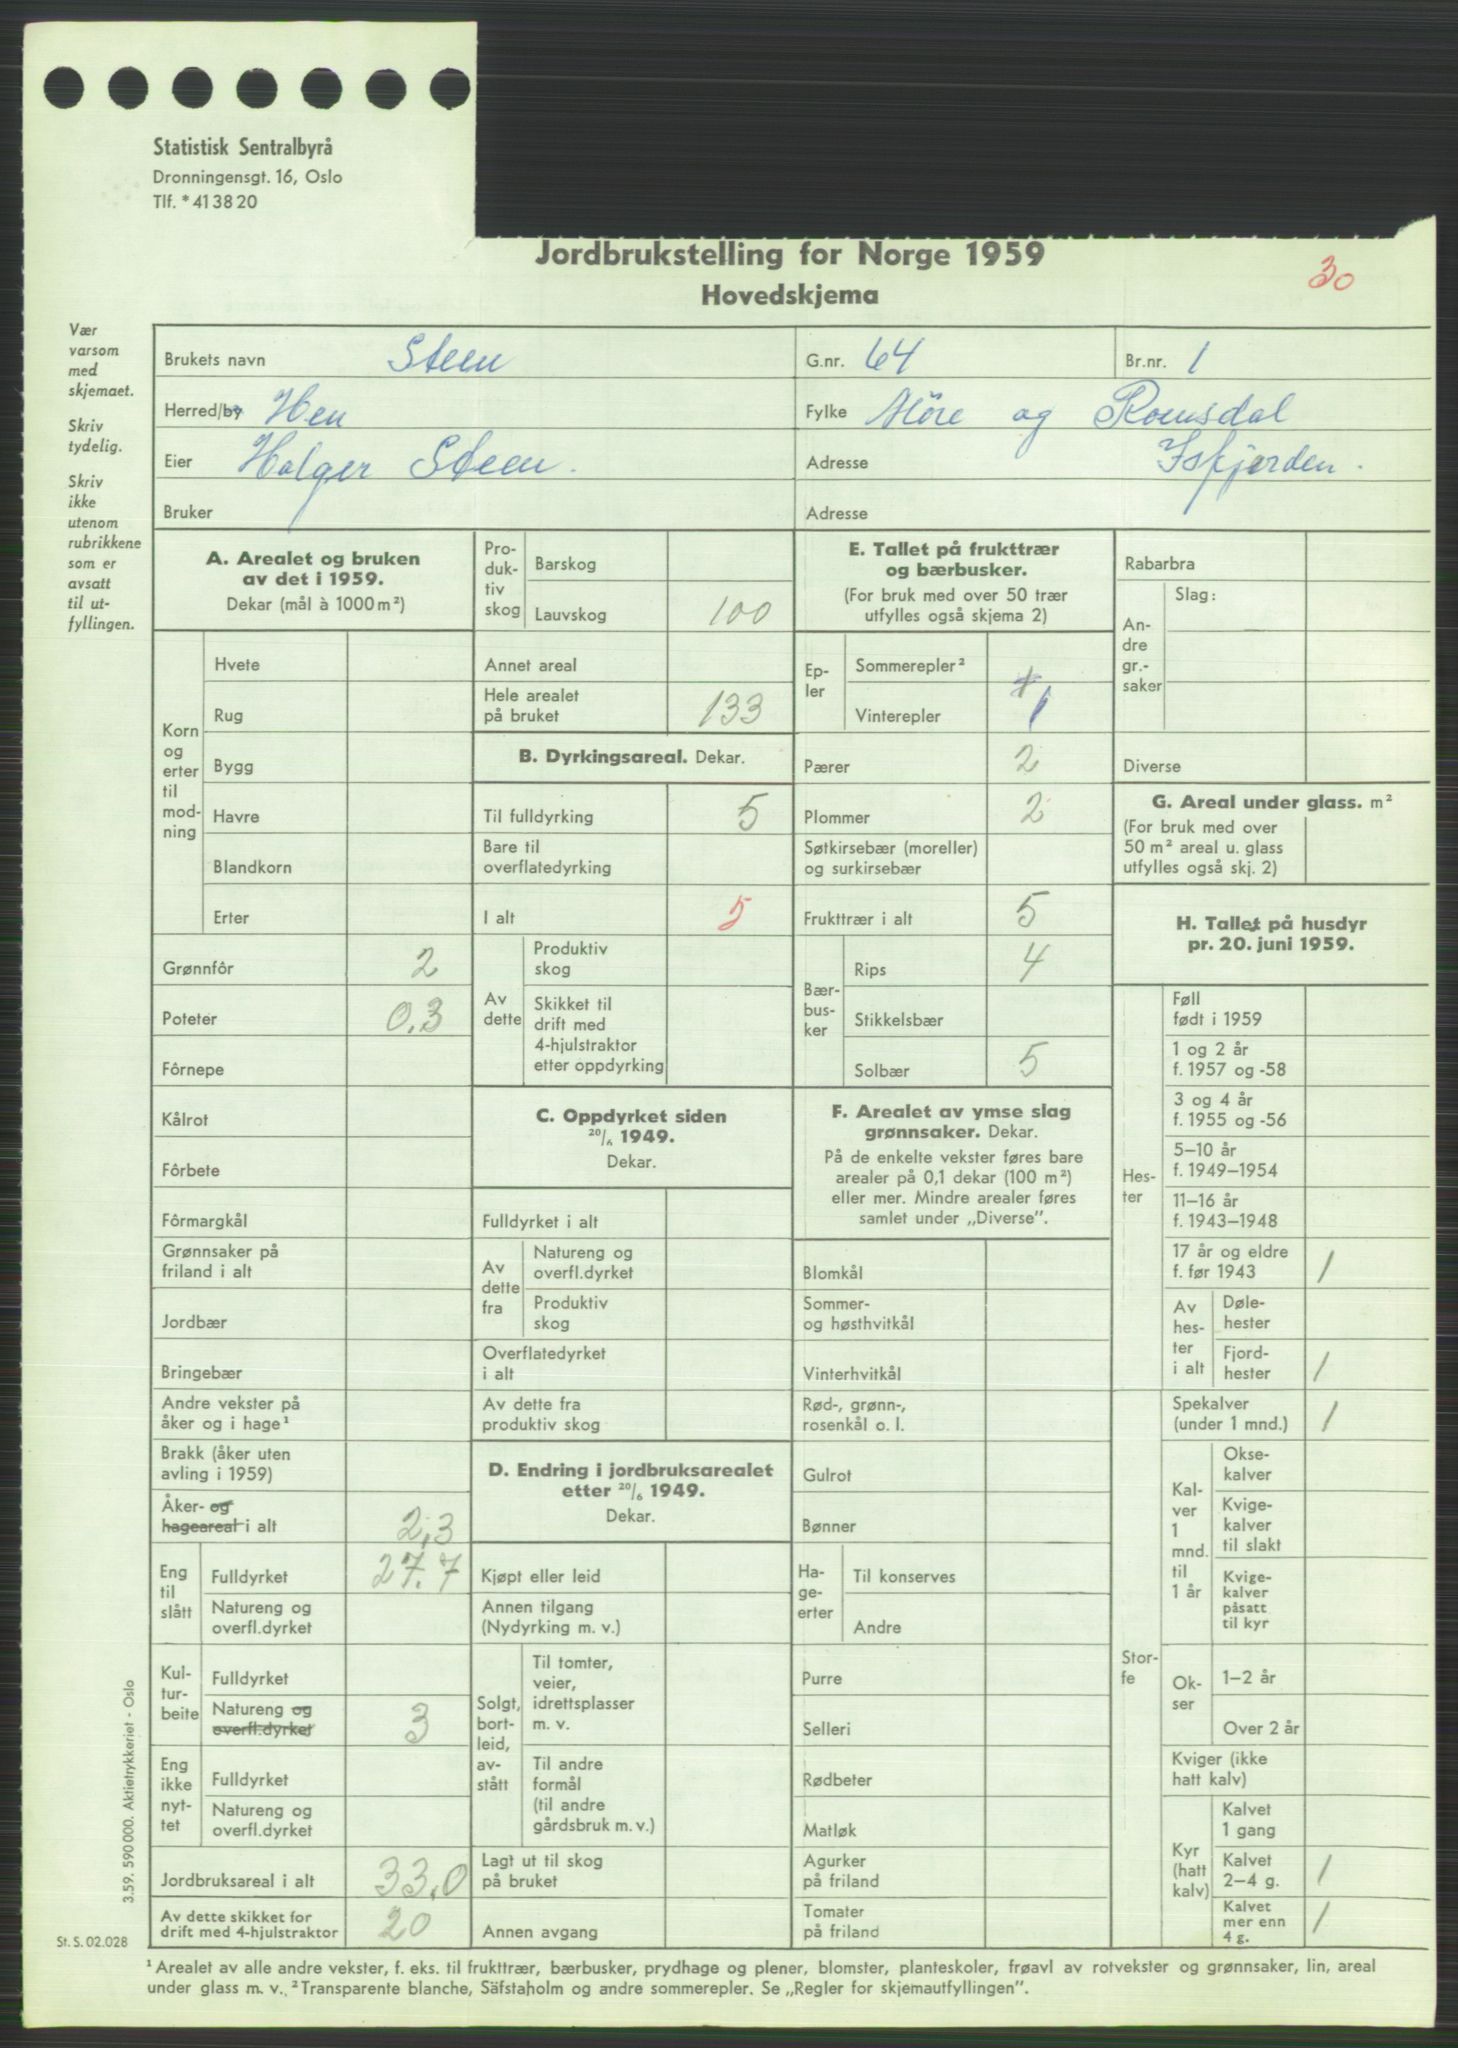 Statistisk Sentralbyrå
Dronningensgt. 16, Oslo
Tlf. * 41 38 20
Jordbrukstelling for Norge 1959
Hovedskjema
30
Vær
varsom
med
skjemaet.
Skriv
tydelig.
Skriv
ikke
utenom
rubrikkene
som er
avsatt
til ut-
fyllingen.
Brukets navn Steen G.nr. 64 Br.nr. 1
Herred/by Hen Fylke Möre og Romsdal
Eier Holger Steen. Adresse Isfjorden.
Bruker Adresse
A. Arealet og bruken
av det i 1959.
Dekar (mål à 1000 m²)
Korn
og
erter
til
mod-
ning
Hvete
Rug
Bygg
Havre
Blandkorn
Erter
Grønnfôr 2
Poteter 0,3
Fôrnepe
Kålrot
Fôrbete
Fôrmargkål
Grønnsaker på
friland i alt
Jordbær
Bringebær
Andre vekster på
åker og i hage¹
Brakk (åker uten
avling i 1959)
Åker- og
hageareal i alt 2,3
Eng
til
slått
Fulldyrket 27.7
Natureng og
overfl.dyrket
Kul-
tur-
beite
Fulldyrket
Natureng og
overfl.dyrket 3
Eng
ikke
nyt-
tet
Fulldyrket
Natureng og
overfl.dyrket
Jordbruksareal i alt 33,0
Av dette skikket for
drift med 4-hjulstraktor 20
Pro-
duk-
tiv
skog
Barskog
Lauvskog 100
Annet areal
Hele arealet
på bruket 133
B. Dyrkingsareal. Dekar.
Til fulldyrking 5
Bare til
overflatedyrking
I alt 5
Av
dette
Produktiv
skog
Skikket til
drift med
4-hjulstraktor
etter oppdyrking
C. Oppdyrket siden
20/6 1949.
Dekar.
Fulldyrket i alt
Av
dette
fra
Natureng og
overfl.dyrket
Produktiv
skog
Overflatedyrket
i alt
Av dette fra
produktiv skog
D. Endring i jordbruksarealet
etter 20/6 1949.
Dekar.
Kjøpt eller leid
Annen tilgang
(Nydyrking m. v.)
Solgt,
bort-
leid,
av-
stått
Til tomter,
veier,
idrettsplasser
m. v.
Til andre
formål
(til andre
gårdsbruk m. v.)
Lagt ut til skog
på bruket
Annen avgang
E. Tallet på frukttrær
og bærbusker.
(For bruk med over 50 trær
utfylles også skjema 2)
Ep-
ler
Sommerepler²
Vinterepler 1
Pærer 2
Plommer 2
Søtkirsebær (moreller)
og surkirsebær
Frukttrær i alt 5
Bær-
bus-
ker
Rips 4
Stikkelsbær
Solbær 5
F. Arealet av ymse slag
grønnsaker. Dekar.
På de enkelte vekster føres bare
arealer på 0,1 dekar (100 m²)
eller mer. Mindre arealer føres
samlet under „Diverse”.
Blomkål
Sommer-
og høsthvitkål
Vinterhvitkål
Rød-, grønn-,
rosenkål o. l.
Gulrot
Bønner
Ha-
ge-
erter
Til konserves
Andre
Purre
Selleri
Rødbeter
Matløk
Agurker
på friland
Tomater
på friland
Rabarbra
An-
dre
gr.-
saker
Slag:
Diverse
G. Areal under glass. m²
(For bruk med over
50 m² areal u. glass
utfylles også skj. 2)
H. Tallet på husdyr
pr. 20. juni 1959.
Hes-
ter
Føll
født i 1959
1 og 2 år
f. 1957 og -58
3 og 4 år
f. 1955 og -56
5–10 år
f. 1949–1954
11–16 år
f. 1943–1948
17 år og eldre
f. før 1943 1
Av
hes-
ter
i alt
Døle-
hester
Fjord-
hester 1
Stor-
fe
Spekalver
(under 1 mnd.) 1
Kal-
ver
1
mnd.
til
1 år
Okse-
kalver
Kvige-
kalver
til slakt
Kvige-
kalver
påsatt
til kyr
Ok-
ser
1–2 år
Over 2 år
Kviger (ikke
hatt kalv)
Kyr
(hatt
kalv)
Kalvet
1 gang
Kalvet
2–4 g. 1
Kalvet
mer enn
4 g. 1
3.59. 590 000. Aktietrykkeriet - Oslo
St. S. 02.028
¹ Arealet av alle andre vekster, f. eks. til frukttrær, bærbusker, prydhage og plener, blomster, planteskoler, frøavl av rotvekster og grønnsaker, lin, areal
under glass m. v. ² Transparente blanche, Säfstaholm og andre sommerepler. Se „Regler for skjemautfyllingen”.